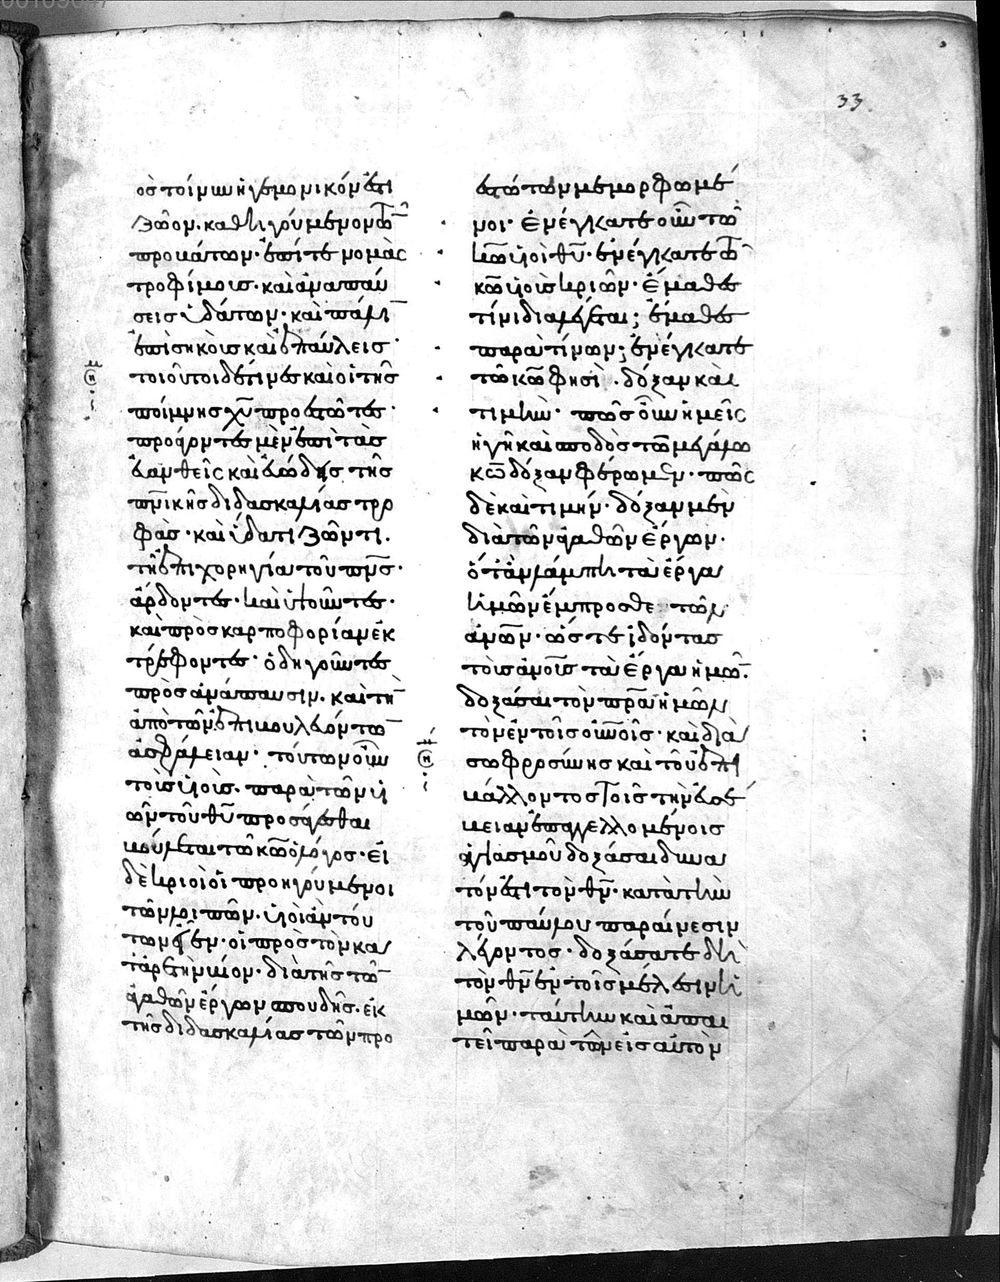 33
ὁς τοίνυν ἡγεμονικόν ἐστι
ζῶον. καθηγούμενον τῶν
προβάτων. ἐπί τε νομὰς
τροφίμοις. καὶ ἀναπαύ
σεις ὑδάτων. καὶ πάλιν
ἐπὶ σηκοὺς καὶ ἐπαύλεις.
τοιοῦτοι δέ τινες καὶ οἱ τῆς
ποίμνης χυ προεστῶτες.
προάγοντες μὲν ἐπὶ τὰς
εὐανθεῖς καὶ εὐώδεις τῆς
πνικῆς διδασκαλίας τρο
φάς. καὶ ὕδατι ζῶντι.
τῆ ἐπιχορηγία τοῦ πνς.
ἄρδοντες. καὶ ὑψοῦντες.
καὶ πρὸς καρποφορίαν ἐκ
τρέφοντες. ὁδηγοῦντες
πρὸς ἀνάπαυσιν. καὶ τὴν
ἀπὸ τῶν ἐπιβουλευόντων
ἀσφάλειαν. τούτων οὖν
τοῖς υἱοῖς. παρὰ τῶν υἱ
ῶν τοῦ θυ προσάγεσθαι
βούλεται τῶ κω ὁ λόγος. εἰ
δὲ κριοὶ οἱ προηγούμενοι
τῶν λοιπῶν. υἱοὶ ἂν τού
των εἶεν. οἱ πρὸς τὸν κα
τἀρετὴν βίον. διὰ τῆς τῶν
ἀγαθῶν ἔργων σπουδῆς. ἐκ
τῆς διδασκαλίας τῶν προ
εστώτων μεμορφωμέ
νοι. ἐνέγκατε οὖν τῶ
κω υἱοὶ θυ. ἐνέγκατε τῶ
κω υἱοὺς κριῶν. ἔμαθες
τίνι διαλέγεται; ἔμαθες
παρὰ τίνων; ἐνέγκατε
τῶ κω φησὶ. δόξαν καὶ
τιμήν. πῶς οὖν ἡμεῖς
ἡ γῆ καὶ σποδὸς τῶ μεγάλω
κω δόξαν φέρωμεν. πῶς
δὲ καὶ τιμήν. δόξαν μὲν
διὰ τῶν ἀγαθῶν ἔργων.
ὅταν λάμπη τὰ ἔργα
ἡμῶν ἔμπροσθε τῶν
ανων. ὥστε ἰδόντας
τοὺς ανους τὰ ἔργα ἡμῶν.
δοξάσαι τὸν πρα ἡμῶν
τὸν ἐν τοῖς ουνοις. καὶ διὰ
σωφροσύνης καὶ τοῦ ἐπι
βάλλοντος τοῖς τὴν εὐσέ
βειαν ἐπαγγελλομένοις
ἁγιασμοῦ δοξάσαι δυνα
τόν ἐστι τὸν θν. κατὰ τὴν
τοῦ παύλου παραίνεσιν
λέγοντος. δοξάσατε δὴ
τὸν θν ἐν τοῖς μέλεσιν ὑ
μῶν. ταύτην καὶ ἀπαι
τεῖ παρὰ τῶν εἰς αὐτὸν